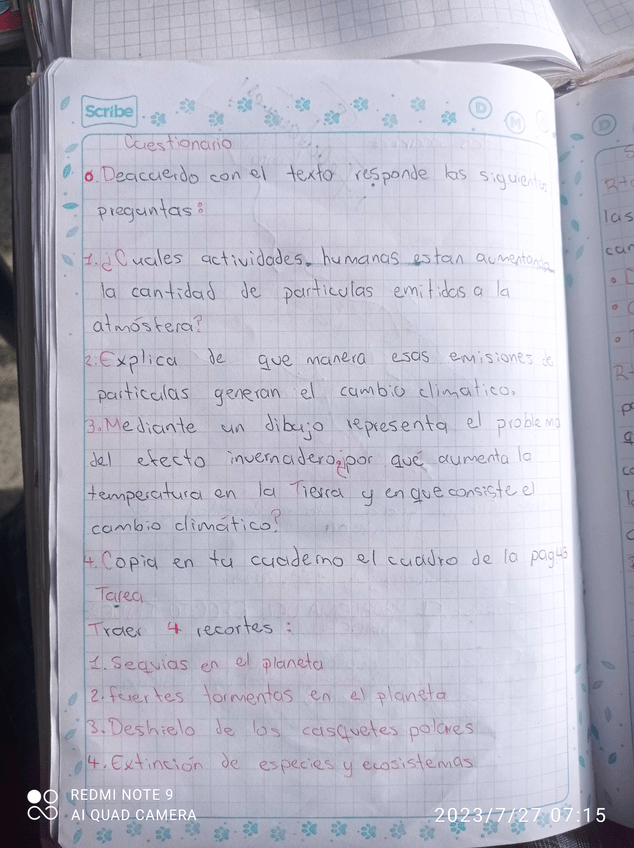 Scribe
D
M
Cuestionario
Deacuerdo con el texto responde las siguientes
preguntas:
1. ¿Cuales actividades humanas estan aumentando
la cantidad de particulas emitidas a la
atmósfera?
2. Explica de que manera esas emisiones de
particulas generan el cambio climatico.
3. Mediante un dibujo representa el problema
del efecto invernadero ¿por qué aumenta la
temperatura en la Tierra y en que consiste el
cambio climático?
4. Copia en tu cuaderno el cuadro de la pag
Tarea
Traer 4 recortes:
1. Sequias en el planeta
2. fuertes tormentas en el planeta
3. Deshielo de los casquetes polares
4. Extinción de especies y ecosistemas
D
las
REDMI NOTE 9
AI QUAD CAMERA
2023/7/27 07:15